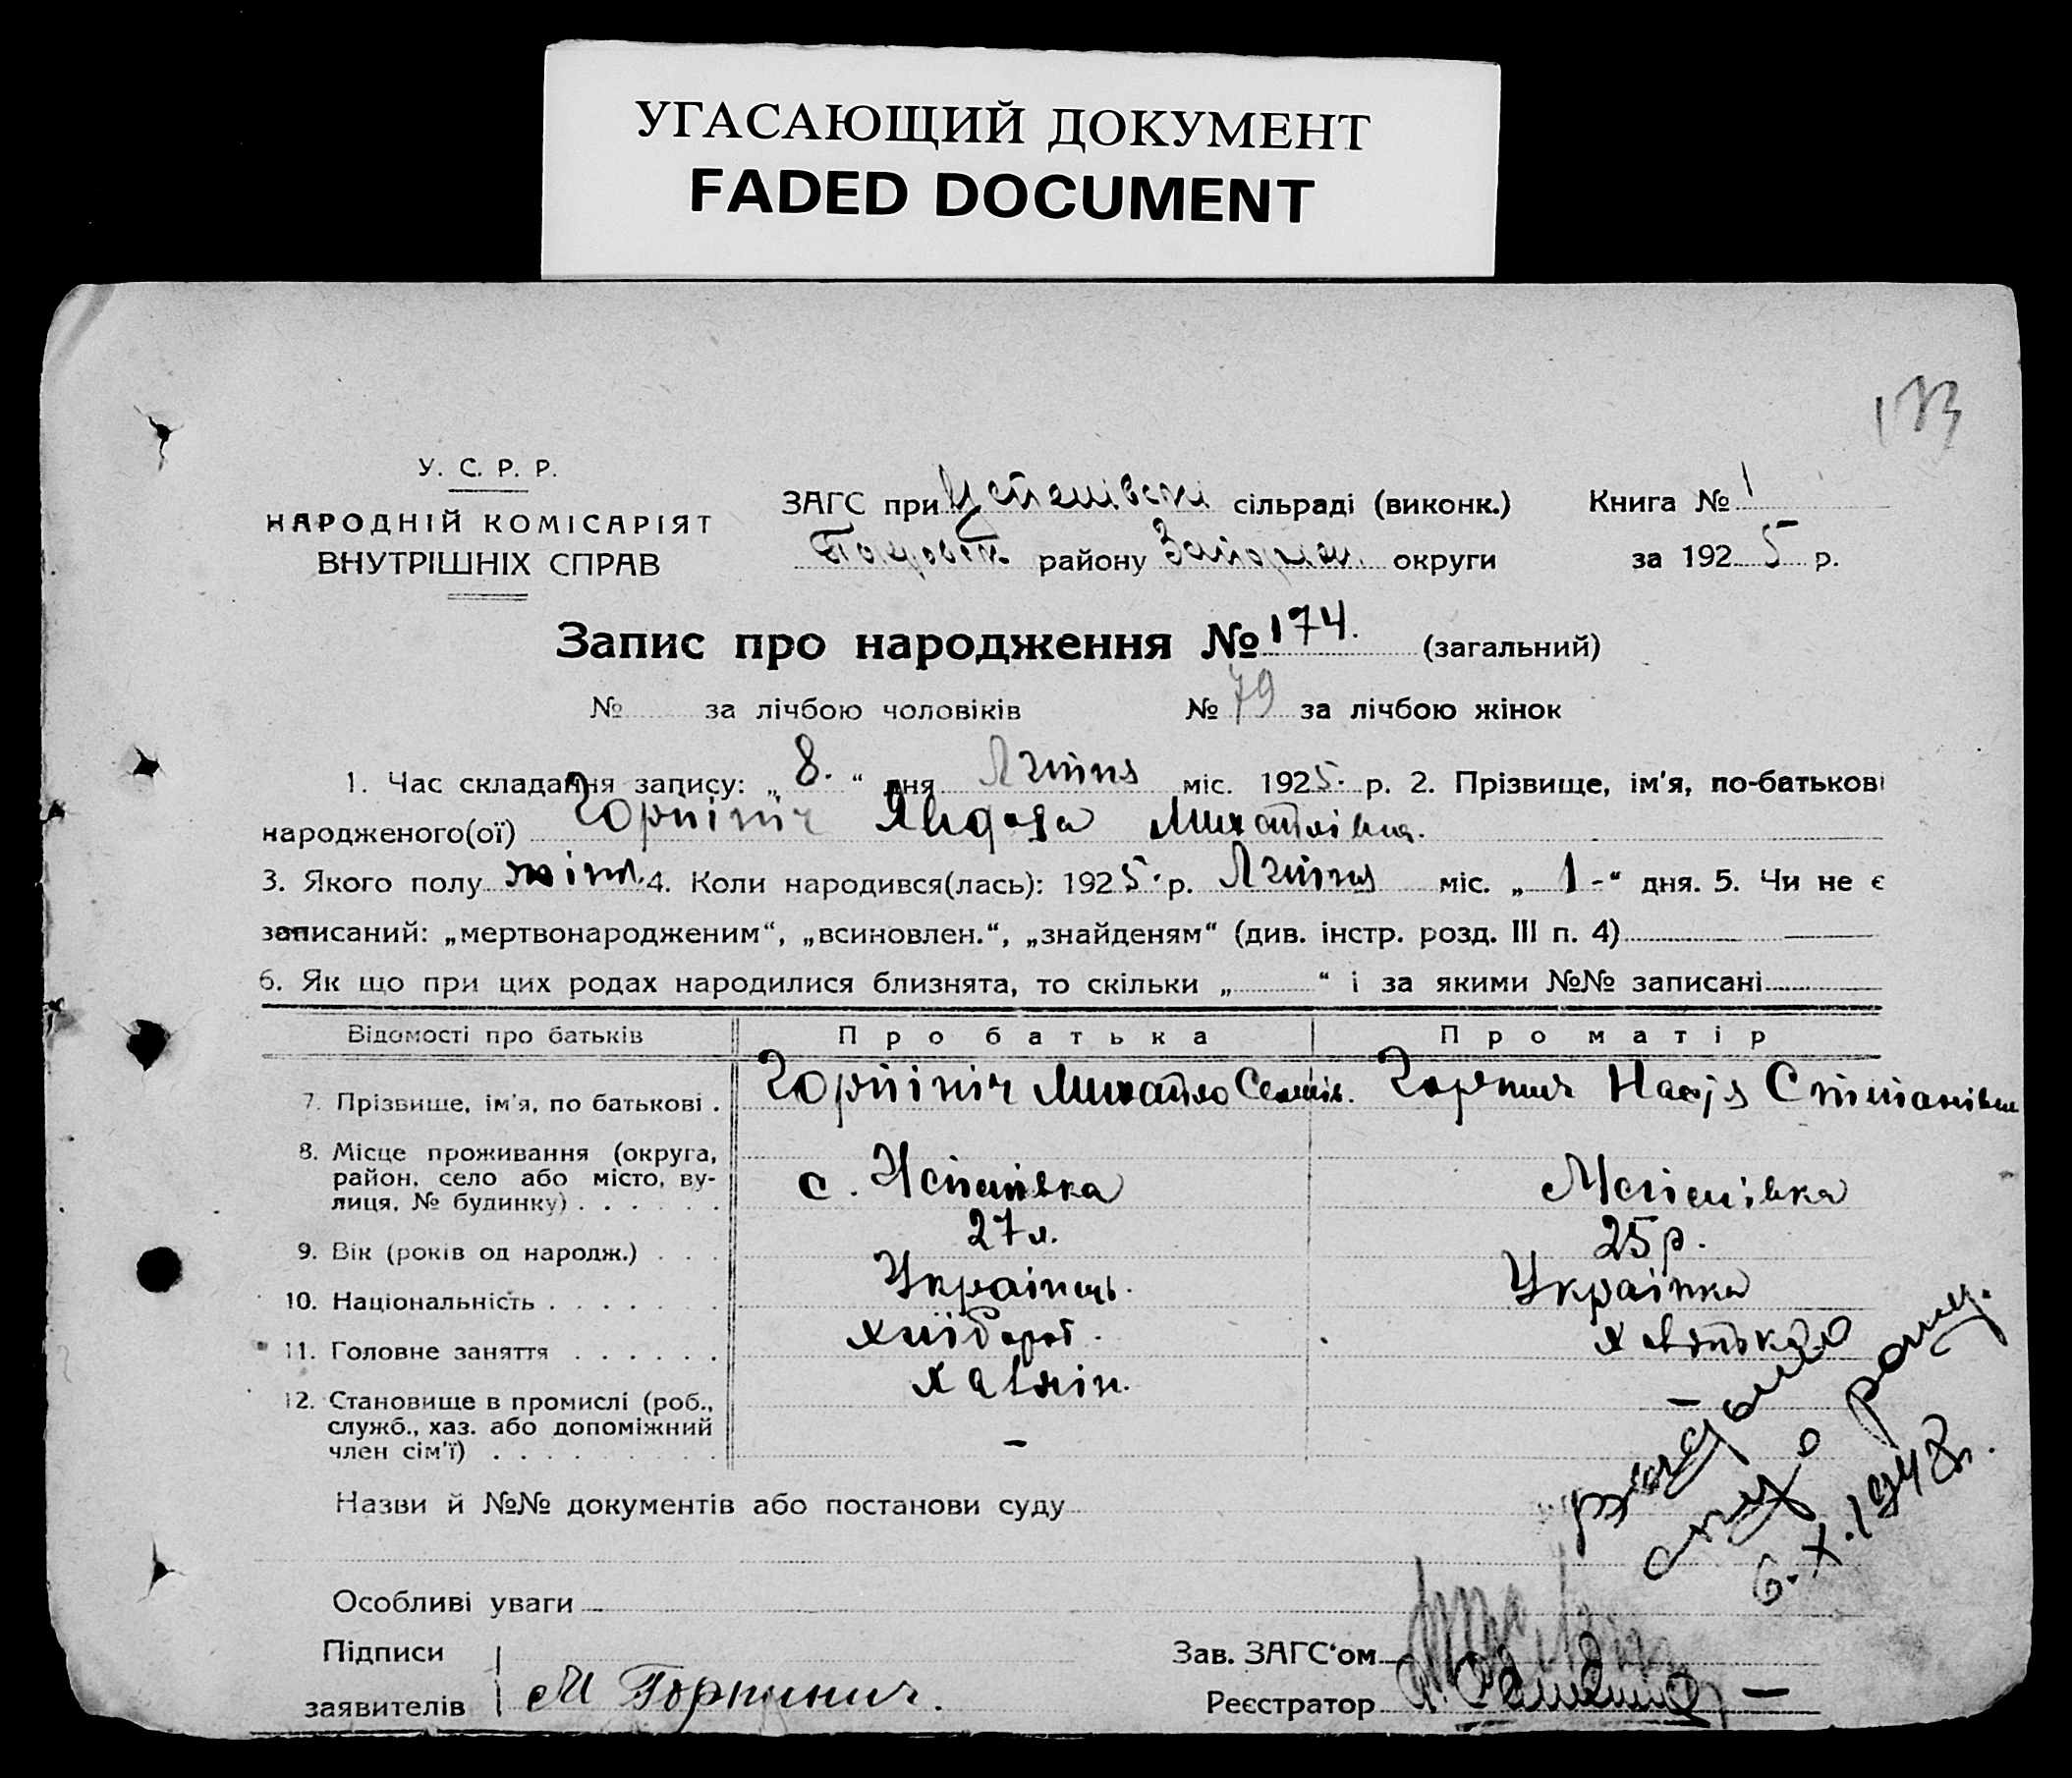 УГАСАЮЩИЙ ДОКУМЕНТ
FADED DOCUMENT
173
У. С. Р. Р.
НАРОДНІЙ КОМІСАРІЯТ
ВНУТРІШНІХ СПРАВ
ЗАГС при сільраді (виконк.)
району Запоріж. округи
Книга № 1
за 1925 р.
Запис про народження № 174. (загальний)
№ за лічбою чоловіків № 79 за лічбою жінок
1. Час складання запису: „ 8. “ дня Липня міс. 1925. р. 2. Прізвище, ім'я, по-батькові
народженого(ої) Горпініч Михайлівна.
3. Якого полу жіноч. 4. Коли народився(лась): 1925. р. Липня міс. „ 1 - “ дня. 5. Чи не є
записаний: „мертвонародженим“, „всиновлен.“, „знайденям“ (див. інстр. розд. III п. 4)
6. Як що при цих родах народилися близнята, то скільки „ “ і за якими №№ записані
Відомості про батьків Про батька Про матір
7. Прізвище, ім'я, по батькові . Горпініч Михайло Семів. Горпинич Настя Степанівна
8. Місце проживання (округа,
район, село або місто, ву-
лиця, № будинку) . . . . . . с. Успенівка
9. Вік (років од народж.) . . . 27 л. 25 р.
10. Національність . . . . . . . Українець. Українка
11. Головне заняття . . . . . . Хлібороб.
12. Становище в промислі (роб.,
служб., хаз. або допоміжний
член сім'ї) . . . . . . . . . . — —
6.X.1948г.
Назви й №№ документів або постанови суду
Особливі уваги
Підписи
заявителів М Горпинич.
Зав. ЗАГС'ом
Реєстратор